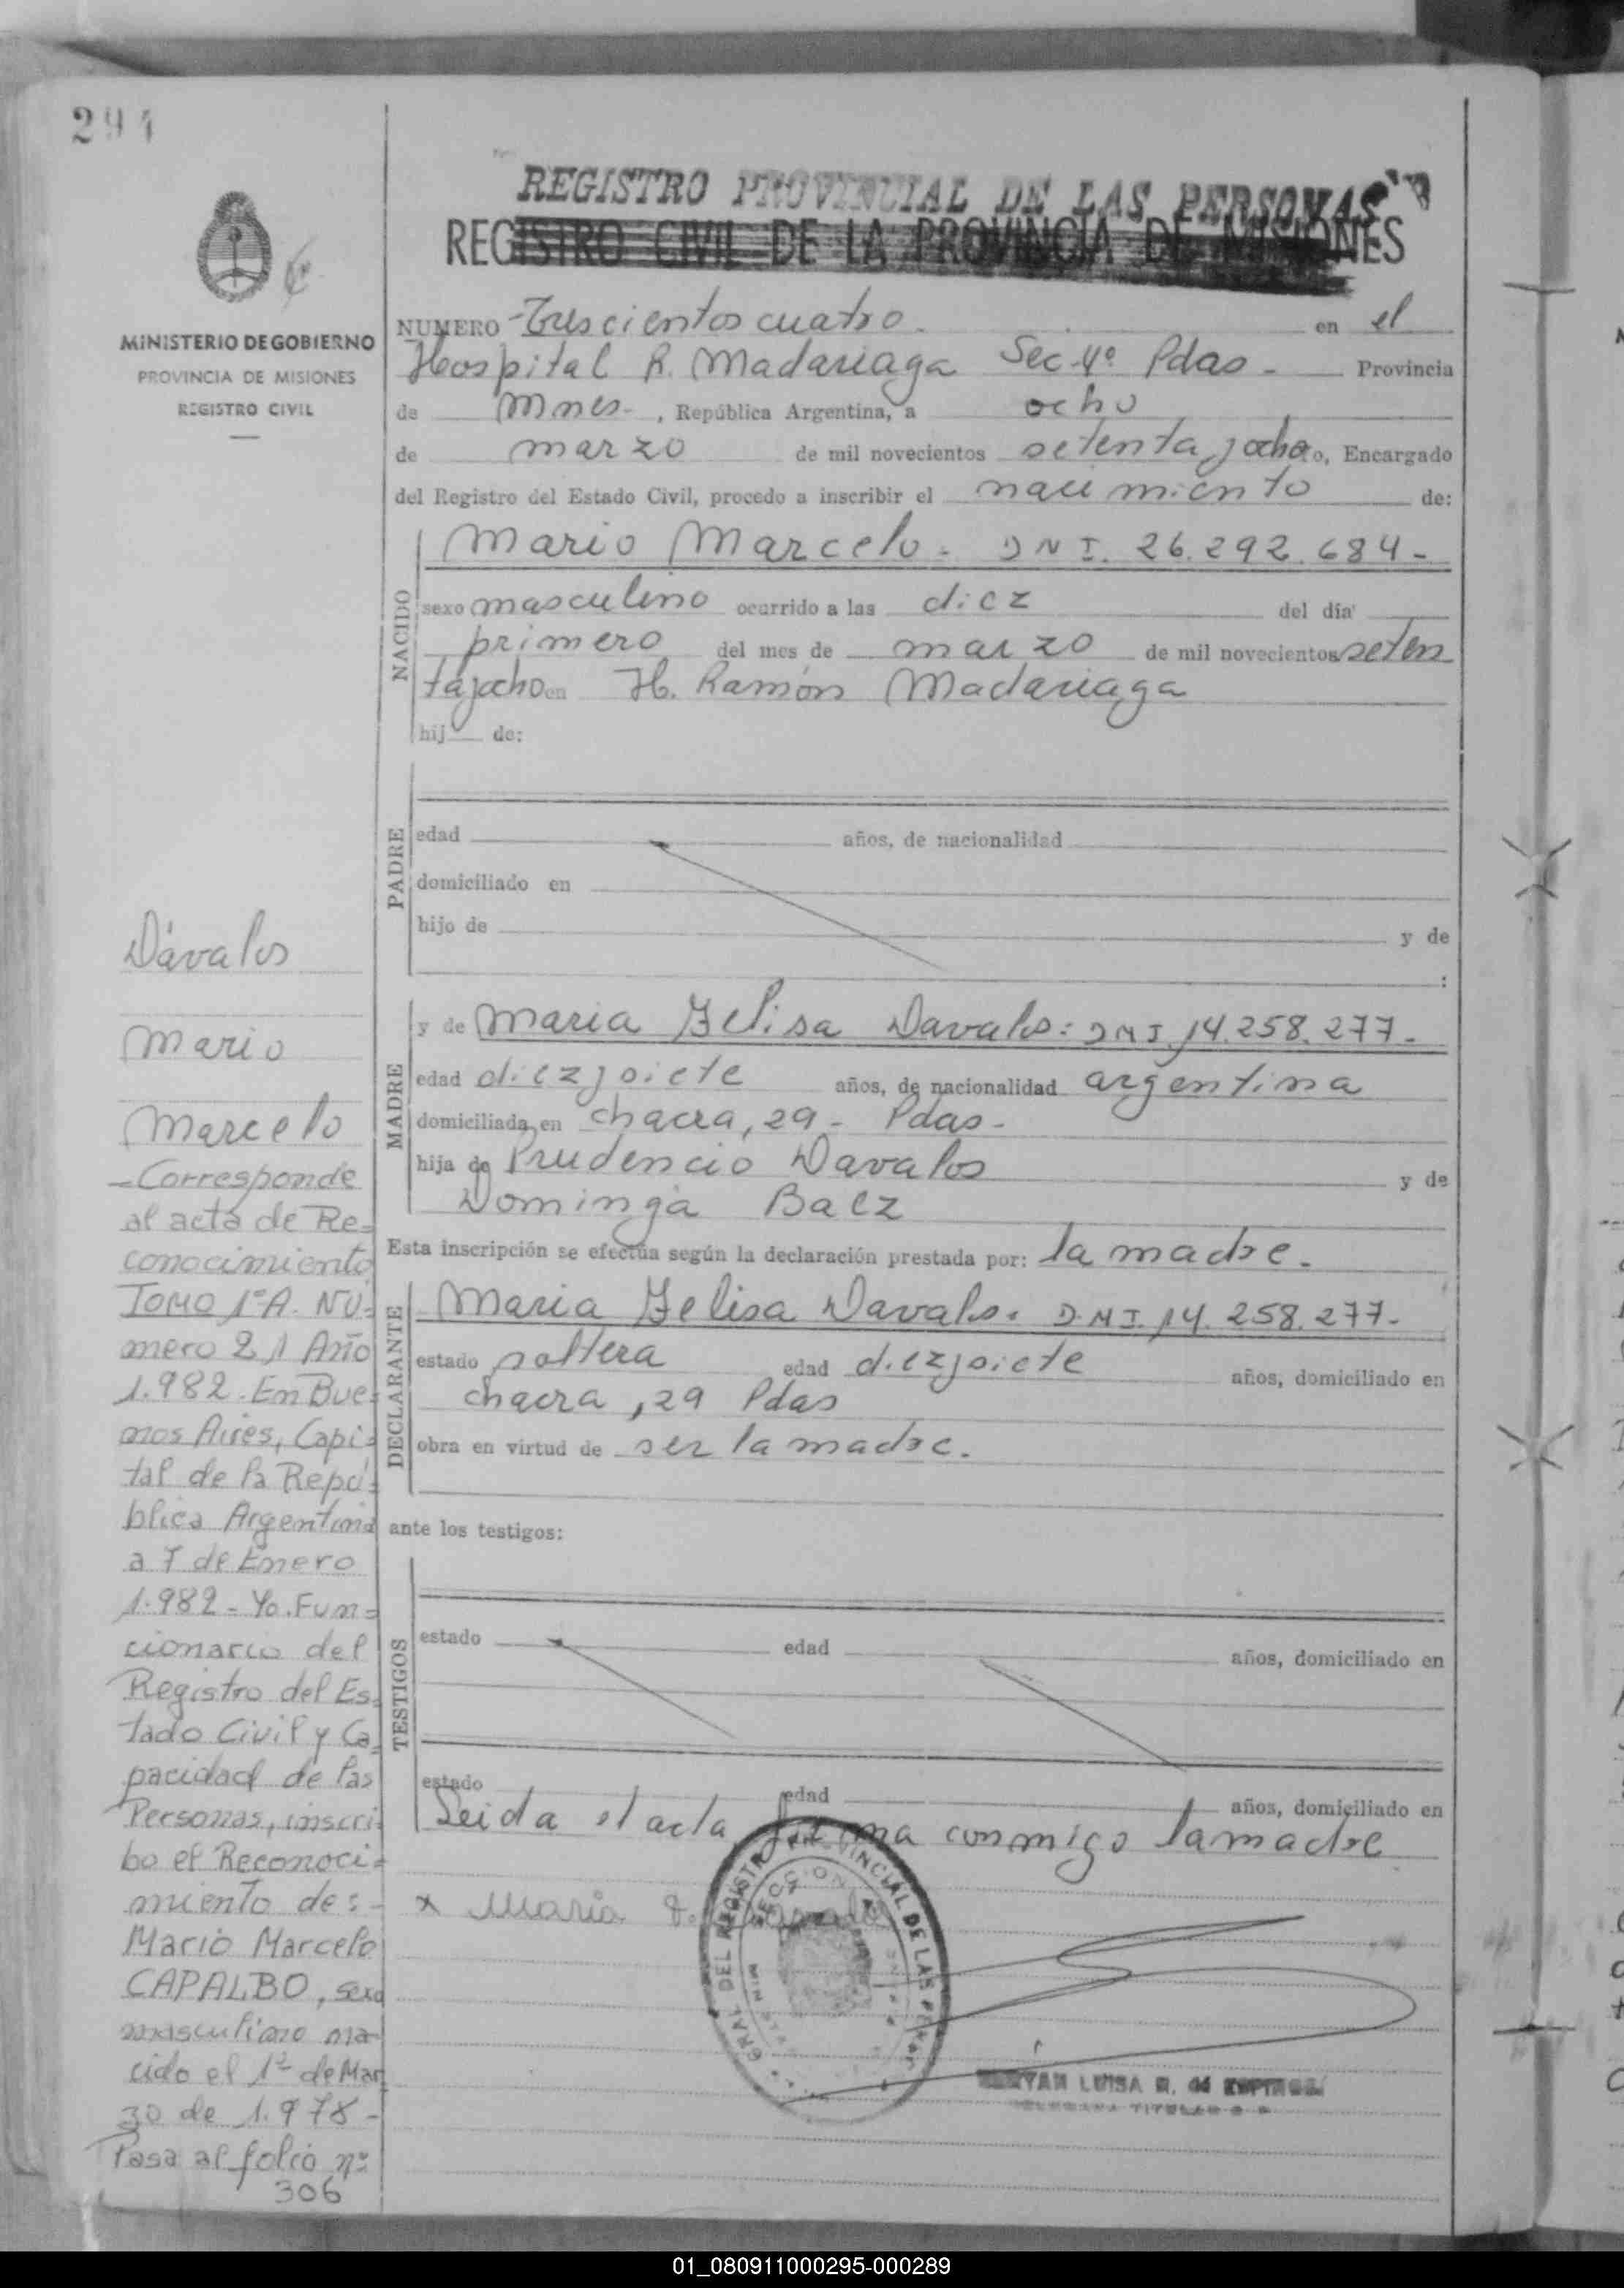 294
MINISTERIO DE GOBIERNO
PROVINCIA DE MISIONES
REGISTRO CIVIL
REGISTRO PROVINCIAL DE LAS PERSONAS
REGISTRO CIVIL DE LA PROVINCIA DE MISIONES
NUMERO Trescientos cuatro. en el
Hospital R. Madariaga Sec 4º Pdas - Provincia
de Mnes-, República Argentina, a ocho
de marzo de mil novecientos setenta y ocho, Encargado
del Registro del Estado Civil, procedo a inscribir el nacimiento de:
NACIDO
Mario Marcelo - DNI. 26.292.684-
sexo masculino ocurrido a las diez del día
primero del mes de marzo de mil novecientos seten
ta y ocho en H. Ramón Madariaga
hij de:
PADRE
edad años, de nacionalidad
domiciliado en
hijo de y de
:
MADRE
y de Maria Felisa Davalos: DNI. 14.258.277-
edad diez y siete años, de nacionalidad argentina
domiciliada en chacra, 29 - Pdas-
hija de Prudencio Davalos y de
Dominga Baez
Esta inscripción se efectúa según la declaración prestada por: la madre.
DECLARANTE
Maria Felisa Davalos. D.N.I. 14.258.277-
estado soltera edad diez y siete años, domiciliado en
chacra, 29 Pdas
obra en virtud de ser la madre.
ante los testigos:
TESTIGOS
estado edad años, domiciliado en
estado edad años, domiciliado en
Leida el acta firma conmigo la madre
x Maria F. Davalos
GRAL DEL REGISTRO PROVINCIAL DE LAS
SECCION
LUISA R. de
TITULAR
Dávalos
Mario
Marcelo
-Corresponde
al acta de Re-
conocimiento
TOMO 1ºA. NÚ-
mero 21 Año
1.982. En Bue-
nos Aires, Capi-
tal de la Repú-
blica Argentina
a 7 de Enero
1.982 - Yo. Fun-
cionario del
Registro del Es-
tado Civil y Ca-
pacidad de las
Personas, inscri-
bo el Reconoci-
miento de: -
Mario Marcelo
CAPALBO, sexo
masculino na-
cido el 1º de Mar
zo de 1.978-
Pasa al folio nº
306
01_080911000295-000289